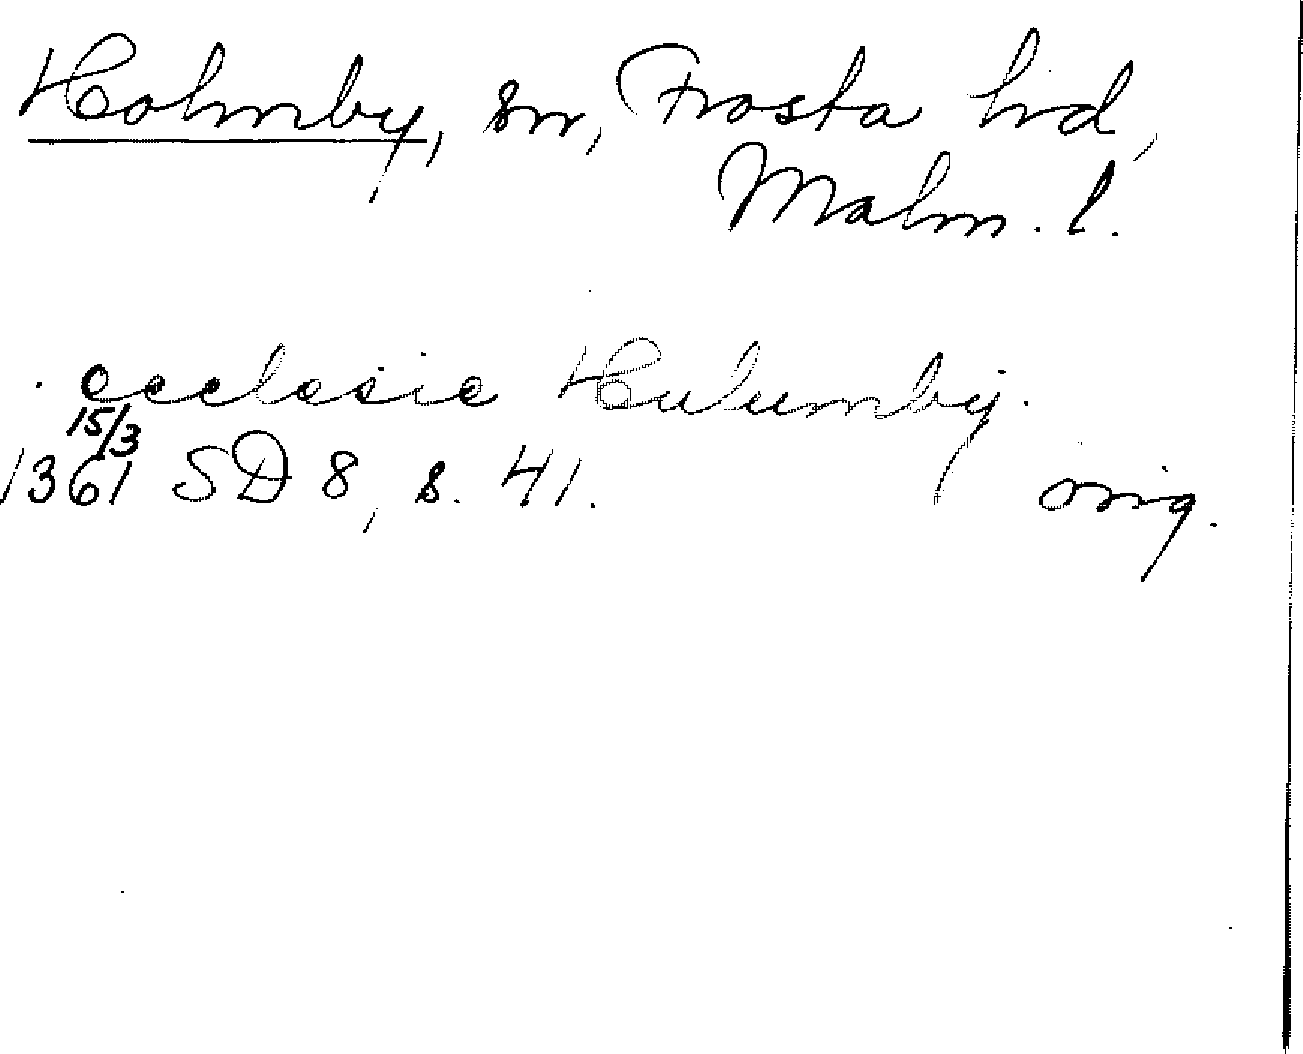 Holmby, sn, Frosta hd,
Malm. l.
ecclesie Hulumby.
15/3
1361 SD 8, s. 41. orig.